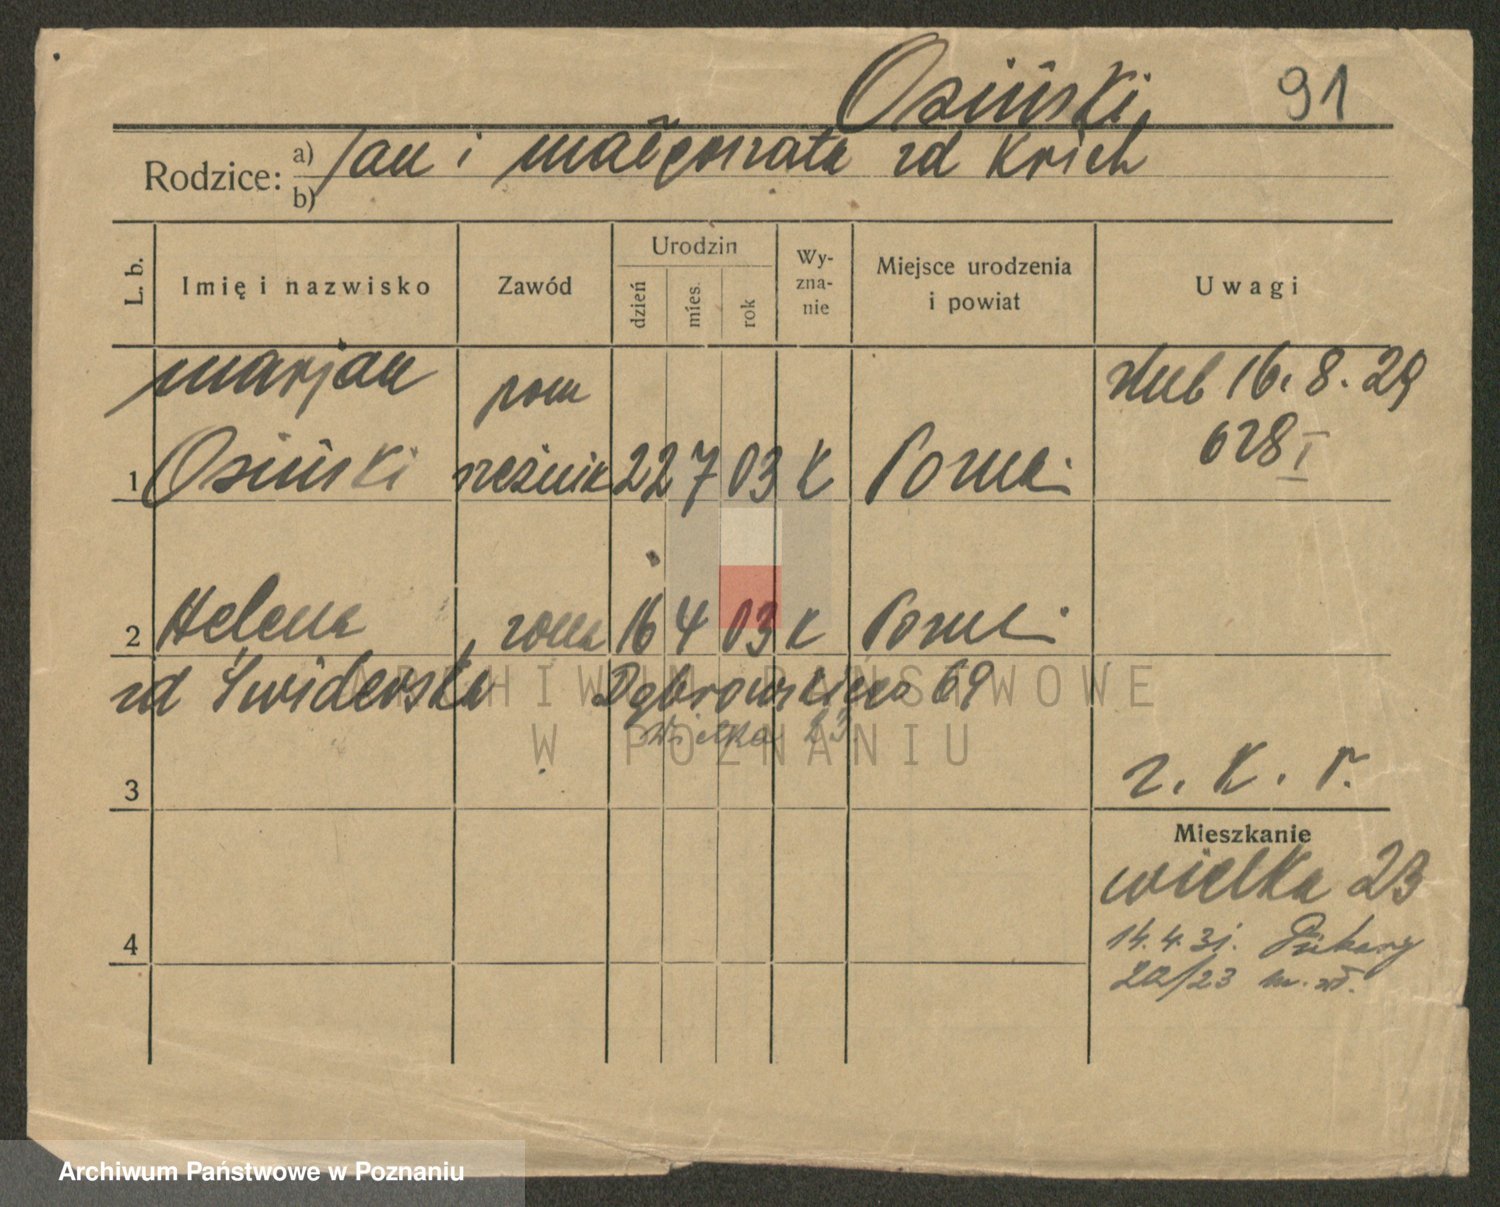 Osiński 91
Rodzice: a) Jan i Małgorzata zd Krich
b)
L. b. Imię i nazwisko Zawód Urodzin dzień mies. rok Wyznanie Miejsce urodzenia i powiat Uwagi
Marjan pom ślub 16.8.29
628 I
1 Osiński rzeźnik 22 7 03 K Pozna
2 Helena żona 16 4 03 K Pozna
zd Świderska Dąbrowskiego 69
Wielka 23
3 r. K. r.
Mieszkanie
Wielka 23
14.4.31.
4
20/23 m.
ARCHIWUM PAŃSTWOWE
W POZNANIU
Archiwum Państwowe w Poznaniu